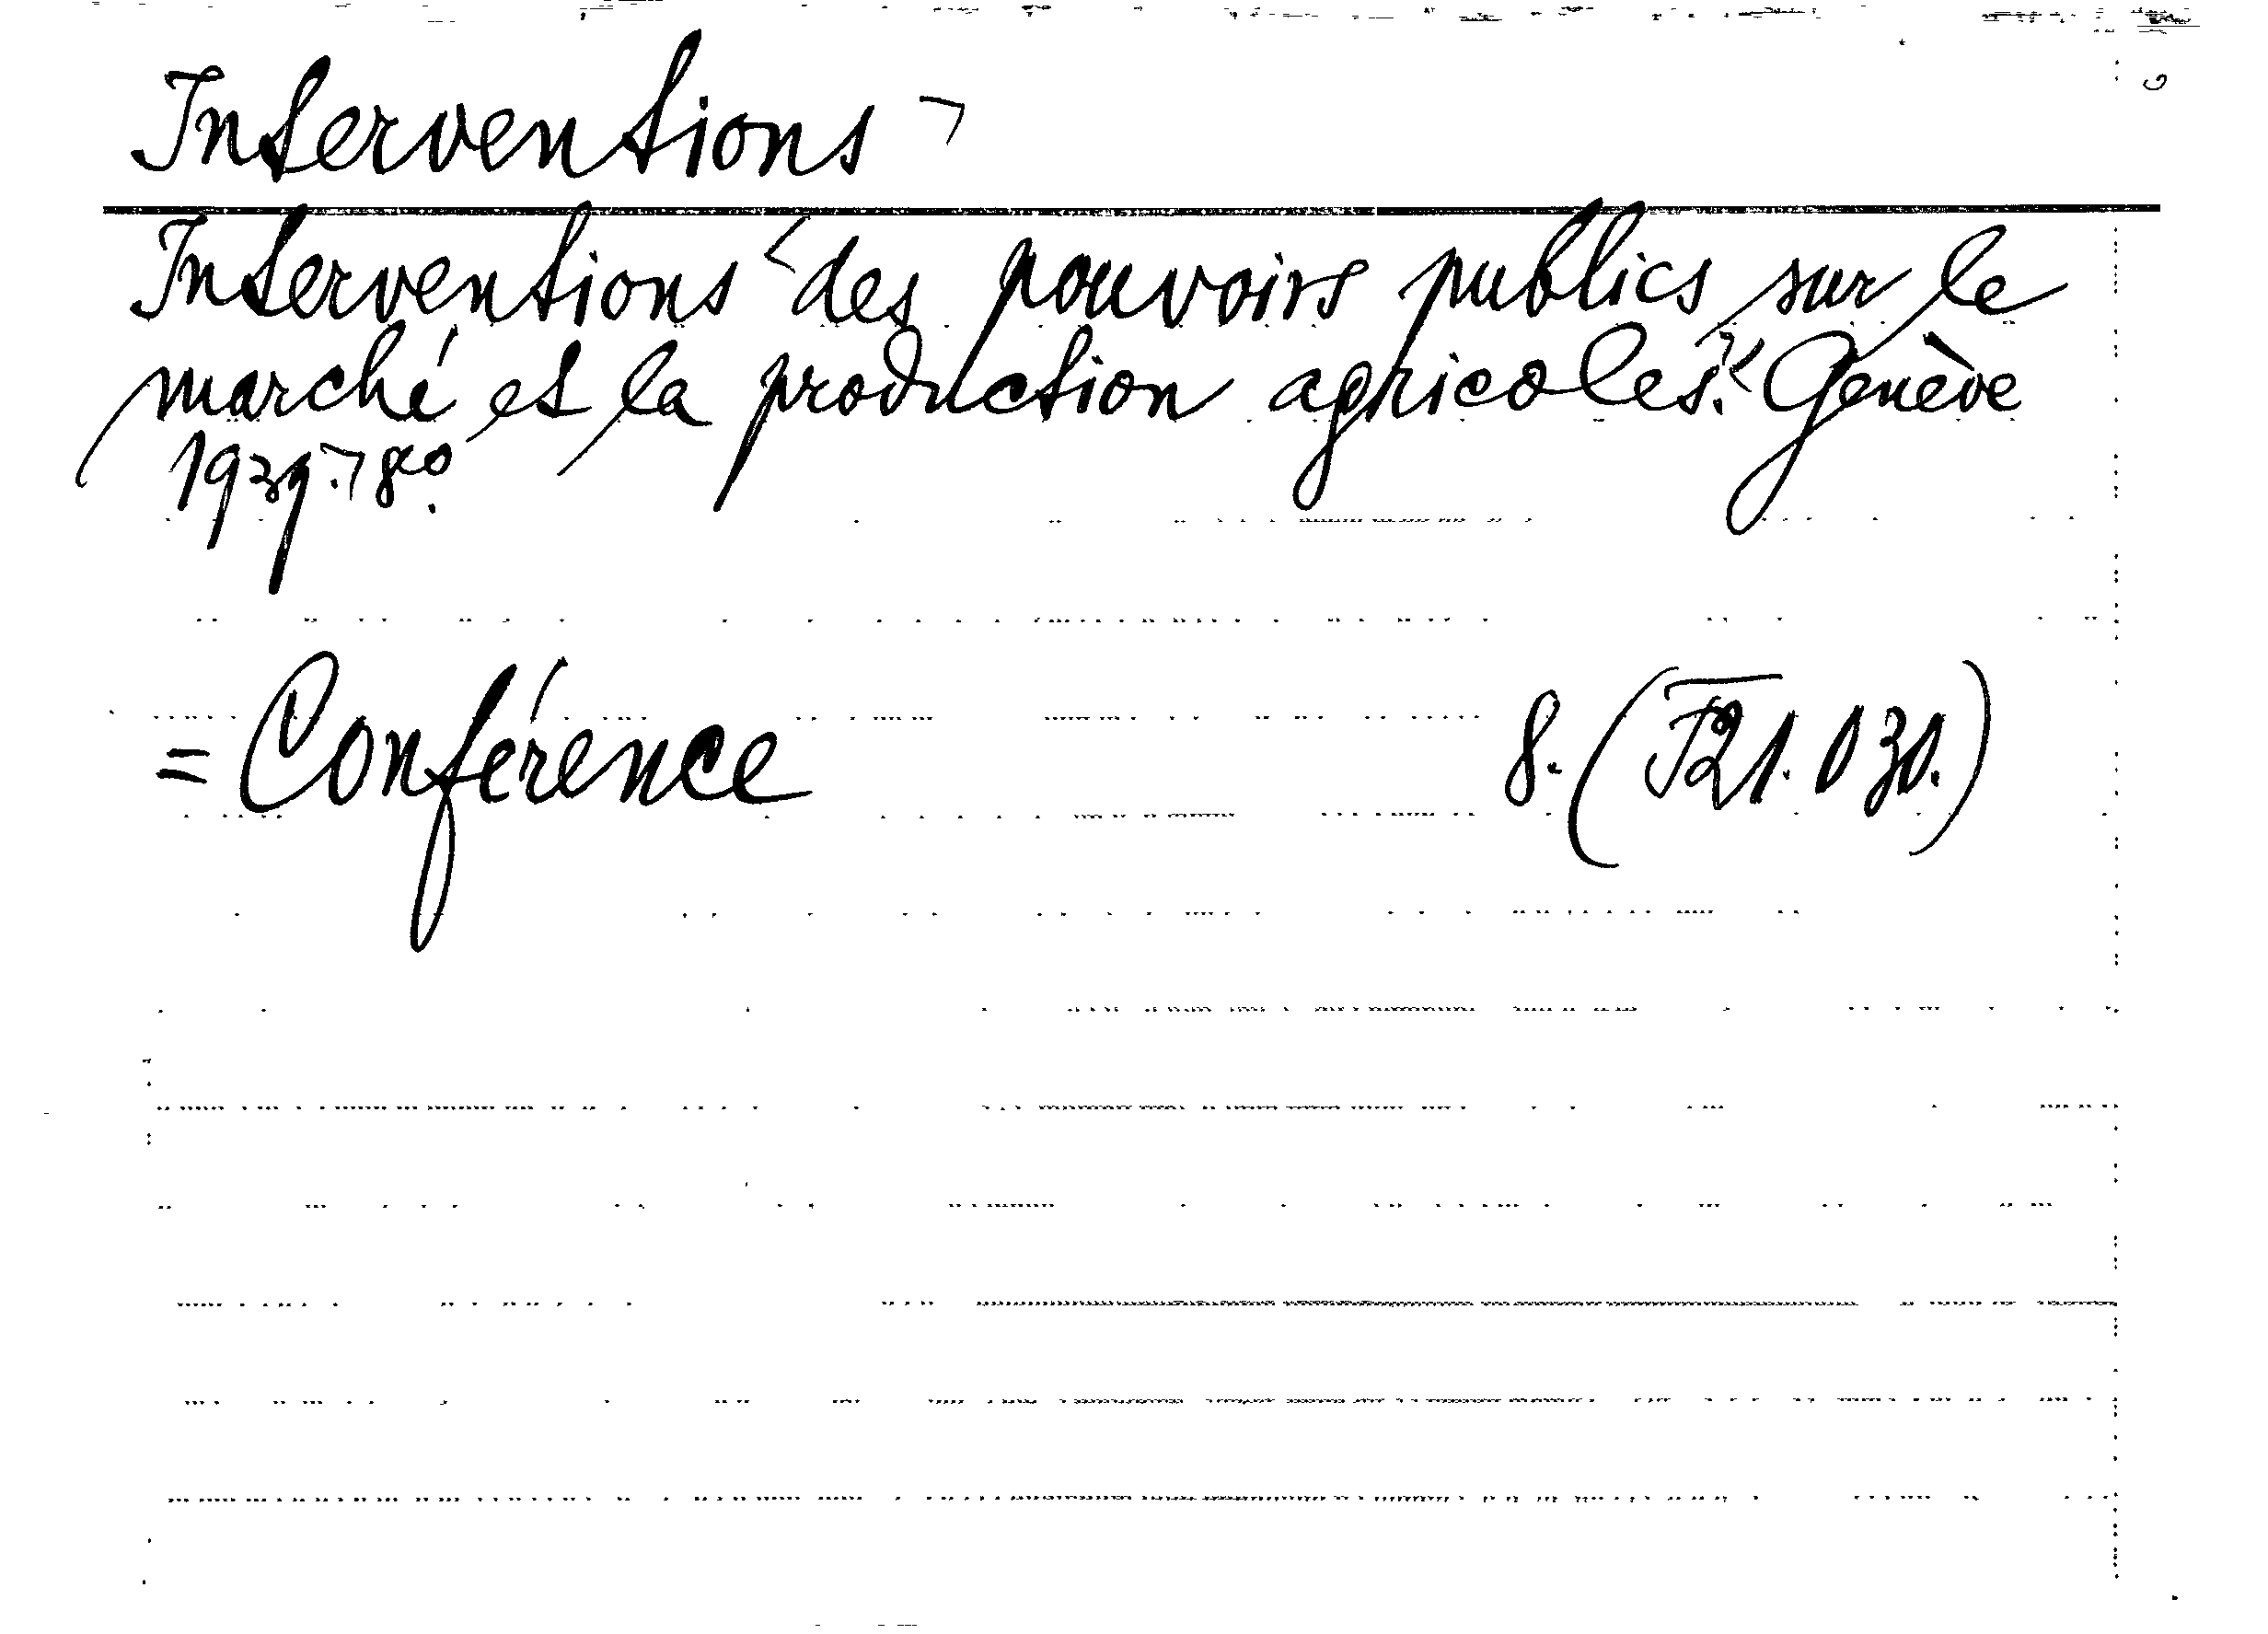 Interventions ¬
Interventions < des pouvoirs publics sur le
marché et la production agricoles. < Genève
1939. ¬ 8⁰.
= Conférence 8. (J21.030.)